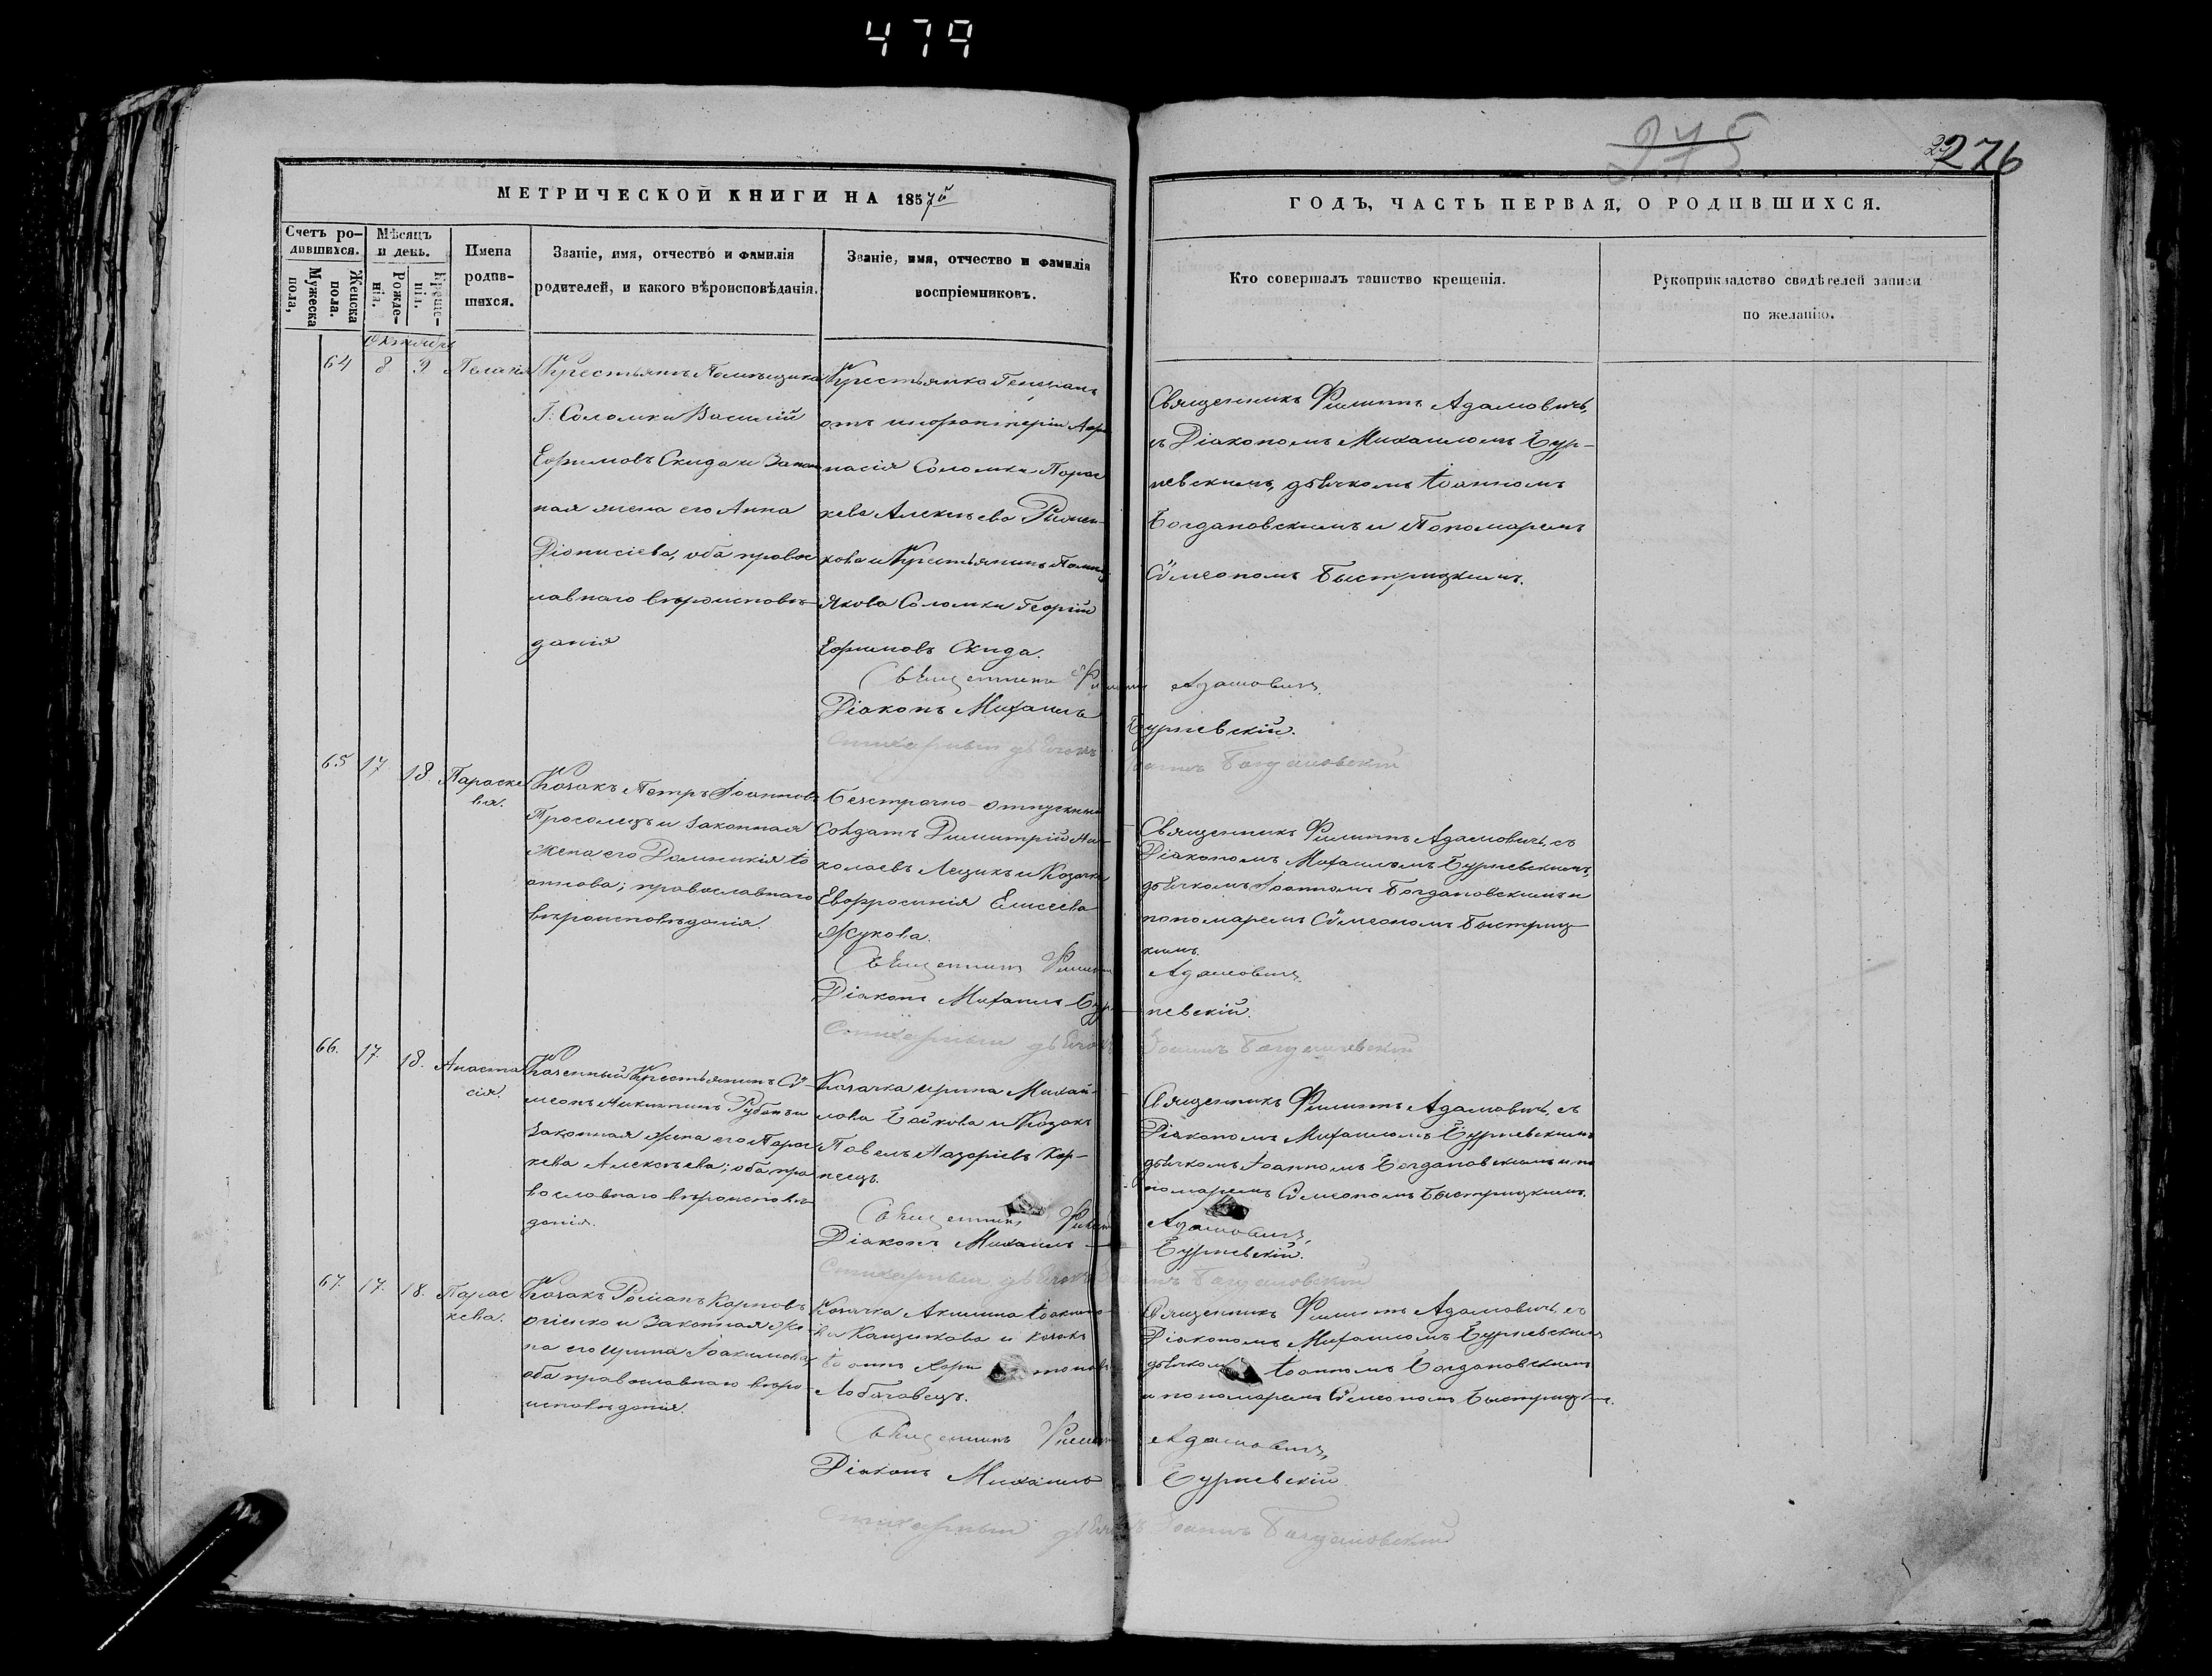 479
275
276
МЕТРИЧЕСКОЙ КНИГИ НА 1857й
ГОДЪ, ЧАСТЬ ПЕРВАЯ, О РОДИВШИХСЯ.
Счетъ ро-
дившихся.
Мужеска
пола,
Женска
пола.
Мѣсяцъ
и день.
Рожде-
нія.
Креще-
нія.
Имена
родив-
шихся.
Званіе, имя, отчество и фамилія
родителей, и какого вѣроисповѣданія.
Званіе, имя, отчество и фамилія
воспріемниковъ.
Кто совершалъ таинство крещенія.
Рукоприкладство свидѣтелей записи
по желанію.
Октября
64 8 9
Крестьянъ Помѣщика
Г: Соломки Василій
Ефимовъ Скида и Закон
ная жена его Анна
Діонисіева, оба правос
лавнаго вѣроисповѣ-
данія
Крестьянка Генерала
отъ инфантеріи Афа
насія Соломки Парас
кева Алексѣева
кова и Крестьянинъ
Якова Соломки Георгій
Ефимовъ Скида.
Священникъ Филиппъ Адамовичъ,
съ Діакономъ Михаиломъ Бур-
невскимъ, дьячкомъ Іоанномъ
Богдановскимъ и Пономаремъ
Сѵмеономъ Быстрицкимъ.
Священникъ Филиппъ Адамовичъ
Діаконъ Михаилъ Бурневскій.
Стихарный дьячокъ Іоаннъ Богдановскій
65 17 18
Параске
ва.
Козакъ Петръ Іоанновъ
Просолецъ и законная
жена его Домникія Іо
аннова; православнаго
вѣроисповѣданія.
Безсрочно-отпускный
Солдатъ Димитрій Ни-
колаевъ Лещикъ и Козачка
Евфросинія Елисеева
Жукова.
Священникъ Филиппъ Адамовичъ, съ
Діакономъ Михаиломъ Бурневскимъ,
дьячкомъ Іоанномъ Богдановскимъ и
пономаремъ Сѵмеономъ Быстриц-
кимъ.
Священникъ Филиппъ Адамовичъ
Діаконъ Михаилъ Бур-невскій.
Стихарный дьячокъ Іоаннъ Богдановскій
66. 17. 18.
Анаста
сія.
Казенный Крестьянинъ Сѵ-
меонъ Никитинъ Рубанъ и
законная жена его Парас
кева Алексѣева; оба пра
вославнаго вѣроисповѣ
данія.
Козачка Ирина Михай-
лова Бойкова и Козакъ
Павелъ Назаріевъ Кор-
неецъ.
Священникъ Филиппъ Адамовичъ, съ
Діакономъ Михаиломъ Бурневскимъ
дьячкомъ Іоанномъ Богдановскимъ и по
номаремъ Сѵмеономъ Быстрицкимъ.
Священникъ Филиппъ Адамовичъ,
Діаконъ Михаилъ Бурневскій.
Стихарный дьячокъ Іоаннъ Богдановскій
67. 17. 18.
Парас
кева.
Козакъ Романъ Карповъ
и Законная же
на его Ирина Іоакимова
оба православнаго вѣро
исповѣданія.
Козачка Акилина Іоакимо
ва и Козакъ
Іоаннъ
Лобаговецъ.
Священникъ Филиппъ Адамовичъ, съ
Діакономъ Михаиломъ Бурневскимъ
дьячкомъ Іоанномъ Богдановскимъ
и пономаремъ Сѵмеономъ Быстрицкимъ.
Священникъ Филиппъ Адамовичъ,
Діаконъ Михаилъ Бурневскій
Стихарный дьячокъ Іоаннъ Богдановскій